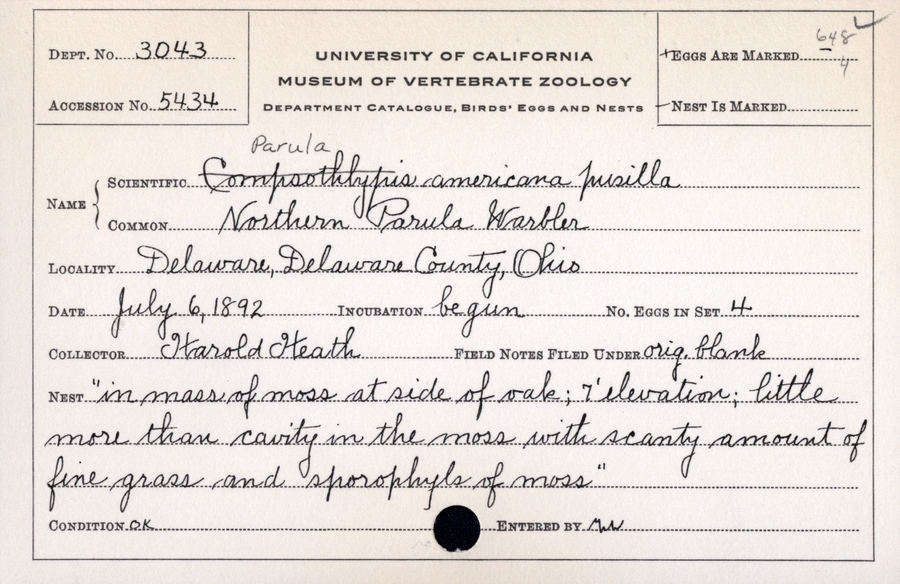 Dept. No. 3043
Accession No. 5434
UNIVERSITY OF CALIFORNIA
MUSEUM OF VERTEBRATE ZOOLOGY
Department Catalogue, Birds' Eggs and Nests
+ Eggs Are Marked 648/4
- Nest Is Marked
Parula
Name { Scientific Compsothlypis americana pusilla
Common Northern Parula Warbler
Locality Delaware, Delaware County, Ohio
Date July 6, 1892 Incubation begun No. Eggs in Set 4
Collector Harold Heath Field Notes Filed Under orig. blank
Nest "in mass of moss at side of oak; 7' elevation; little
more than cavity in the moss with scanty amount of
fine grass and sporophyls of moss"
Condition OK Entered by